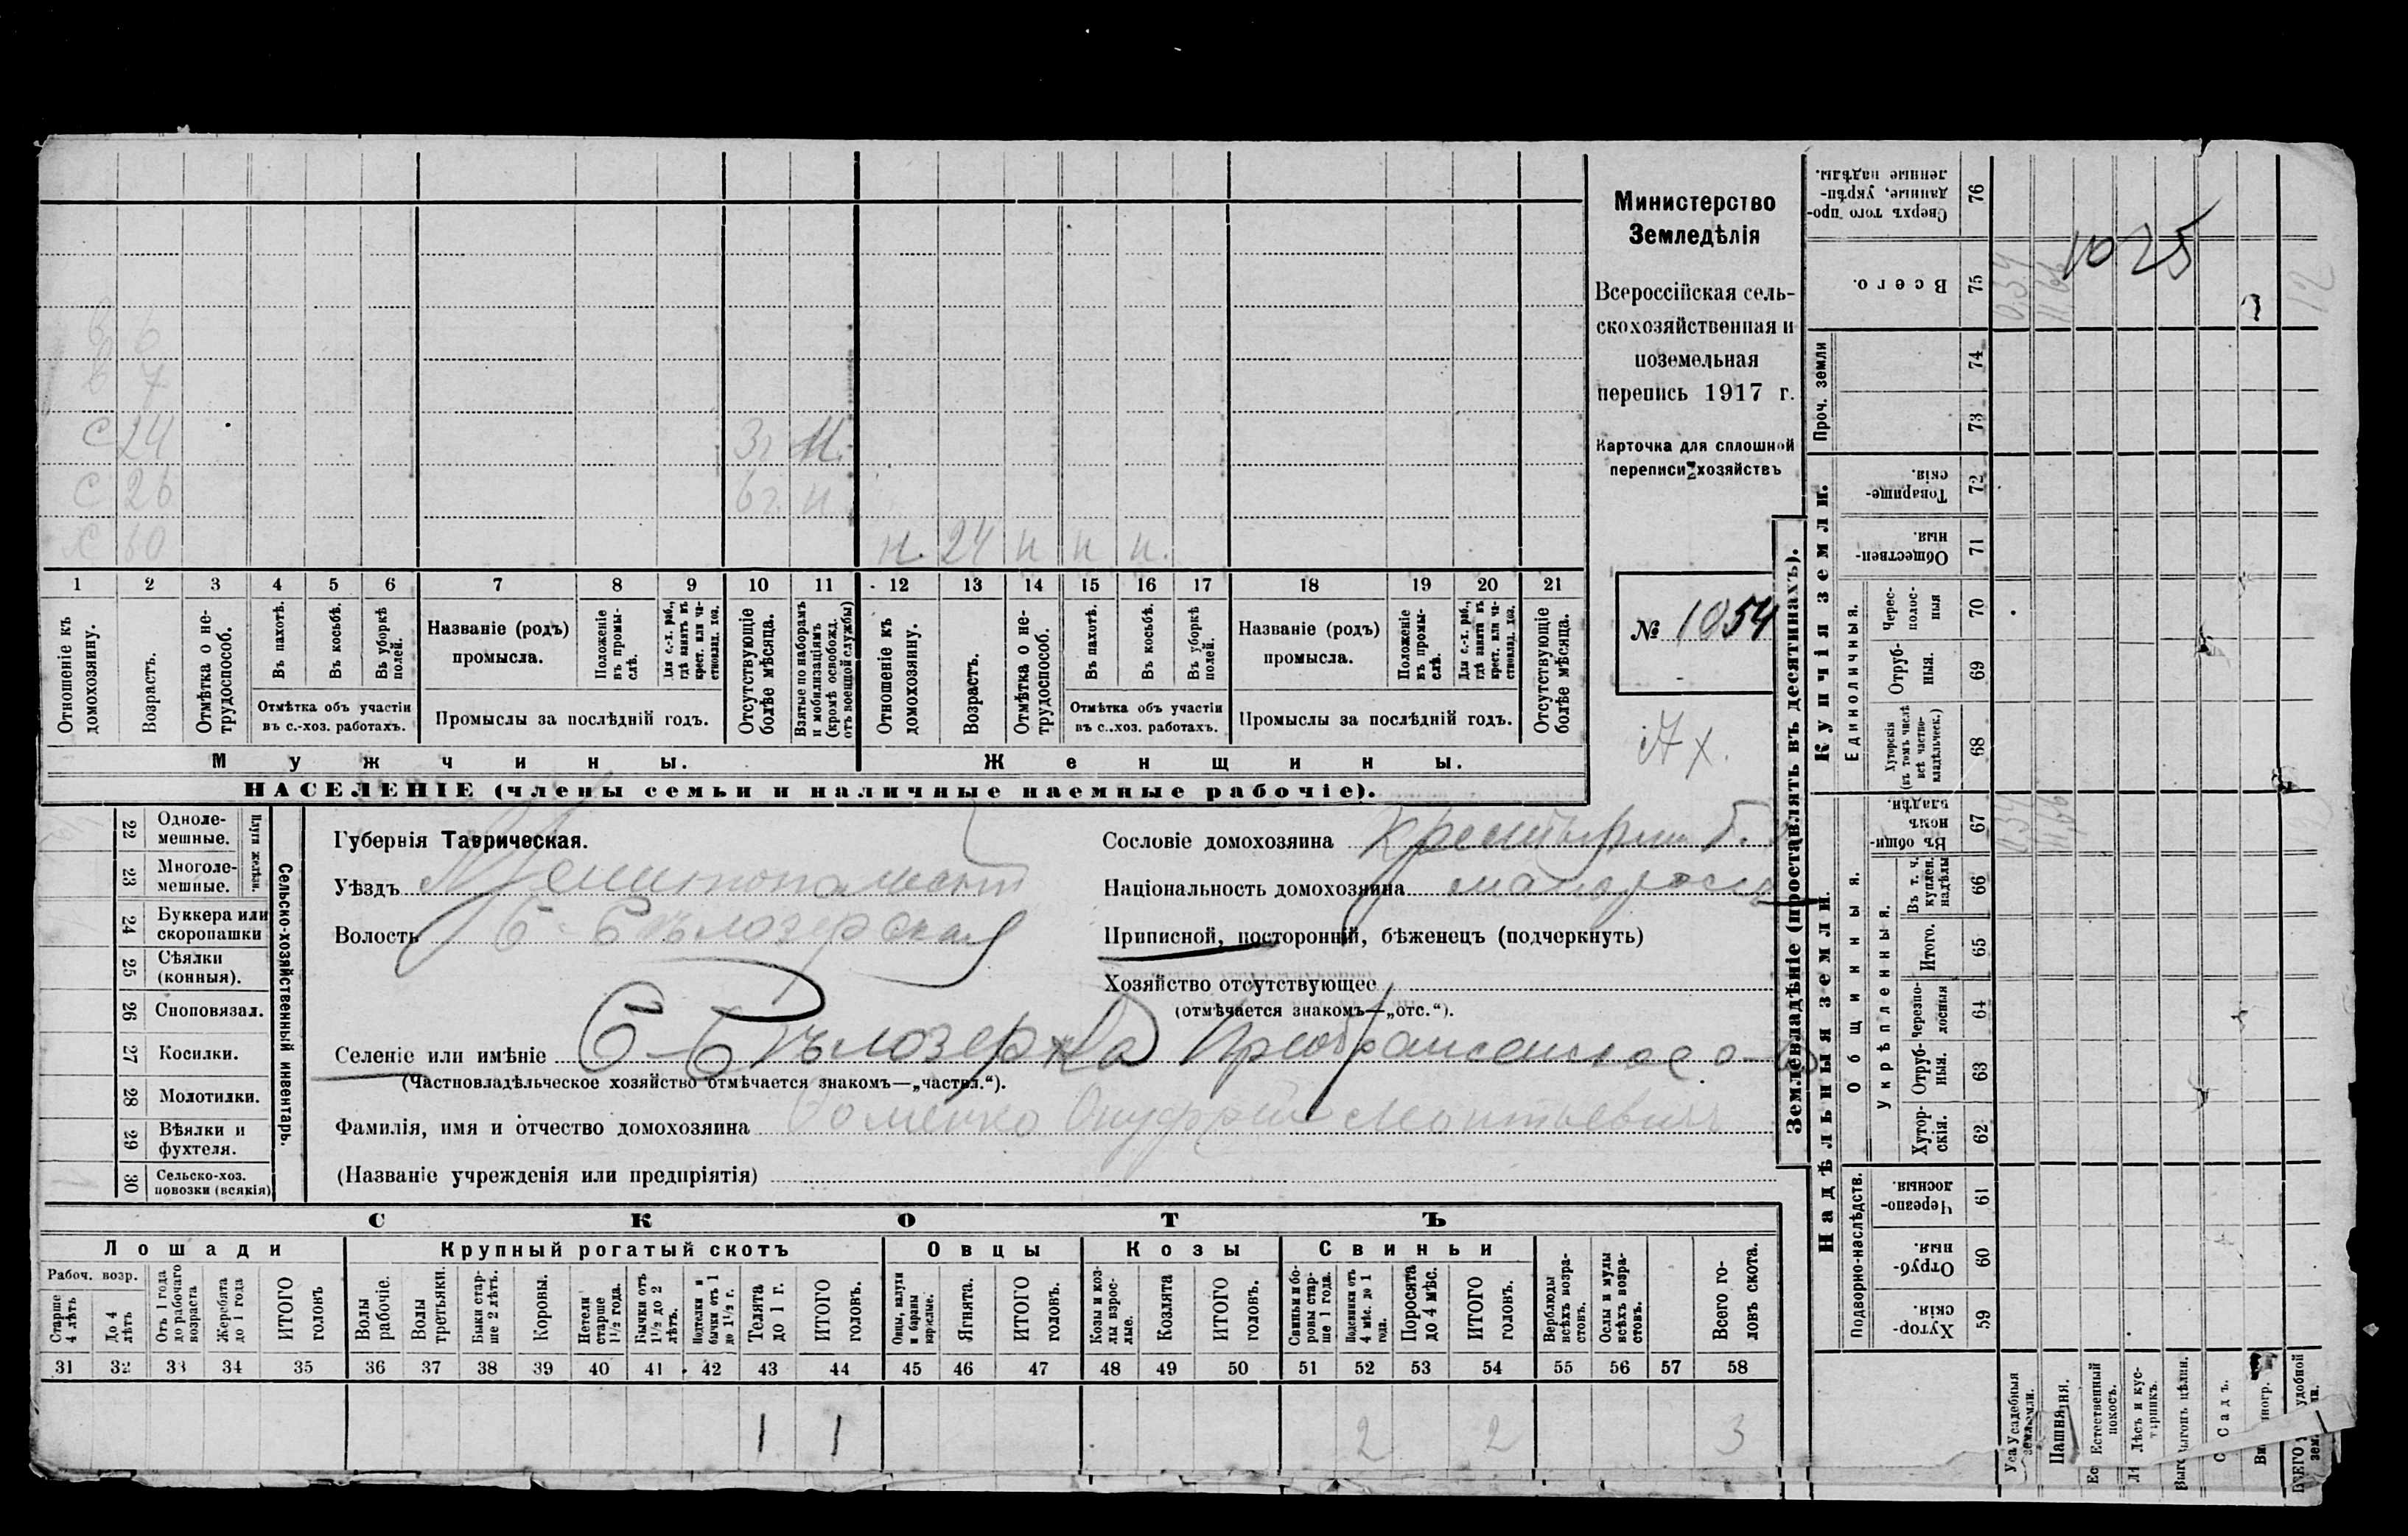 Министерство
Земледѣлія
Всероссійская сель-
скохозяйственная и
поземельная
перепись 1917 г.
Карточка для сплошной
переписи хозяйствъ
№ 1054
А х.
в 6
в 7
с 24 3 г. м.
с 26 6 г. н
х 60
н. 24 н н н.
1 2 3 4 5 6 7 8 9 10 11 12 13 14 15 16 17 18 19 20 21
Отношеніе къ домохозяину.
Возрастъ.
Отмѣтка о не-трудоспособ.
Въ пахотѣ.
Въ косьбѣ.
Въ уборкѣ полей.
Отмѣтка объ участіи
въ с.-хоз. работахъ.
Названіе (родъ)
промысла.
Положеніе въ промы-слѣ.
Для с.-х. раб., гдѣ занятъ въ крест. или ча-стновлад. хоз.
Промыслы за послѣдній годъ.
Отсутствующіе болѣе мѣсяца.
Взятые по наборамъ и мобилизаціямъ (кромѣ освобожд. отъ военной службы)
Отношеніе къ домохозяину.
Возрастъ.
Отмѣтка о не-трудоспособ.
Въ пахотѣ.
Въ косьбѣ.
Въ уборкѣ полей.
Отмѣтка объ участіи
въ с.-хоз. работахъ.
Названіе (родъ)
промысла.
Положеніе въ промы-слѣ.
Для с.-х. раб., гдѣ занятъ въ крест. или ча-стновлад. хоз.
Промыслы за послѣдній годъ.
Отсутствующіе болѣе мѣсяца.
Мужчины.
Женщины.
НАСЕЛЕНІЕ (члены семьи и наличные наемные рабочіе).
Сельско-хозяйственный инвентарь.
Плуги желѣзн.
22 Одноле-мешные.
23 Многоле-мешные.
24 Буккера или скоропашки
25 Сѣялки (конныя).
26 Сноповязал.
27 Косилки.
28 Молотилки.
29 Вѣялки и фухтеля.
30 Сельско-хоз. повозки (всякія)
Губернія Таврическая.
Уѣздъ Мелитопольскій
Волость Б-Бѣлозерская
Селеніе или имѣніе Б-Бѣлозерка Преображенскаго
(Частновладѣльческое хозяйство отмѣчается знакомъ—„частвл.“).
Фамилія, имя и отчество домохозяина Фоменко Онуфрій Матвѣевичъ
(Названіе учрежденія или предпріятія)
Сословіе домохозяина крестьянин б.
Національность домохозяина малоросс
Приписной, посторонній, бѣженецъ (подчеркнуть)
Хозяйство отсутствующее
(отмѣчается знакомъ—„отс.“).
СКОТЪ
Лошади
Крупный рогатый скотъ
Овцы
Козы
Свиньи
Рабоч. возр.
Старше 4 лѣтъ
До 4 лѣтъ
Отъ 1 года до рабочаго возраста
Жеребята до 1 года
ИТОГО головъ
Волы рабочіе.
Волы третьяки.
Быки стар-ше 2 лѣтъ.
Коровы.
Нетели старше 1½ года.
Бычки отъ 1½ до 2 лѣтъ.
Подтелки и бычки отъ 1 до 1½ г.
Телята до 1 г.
ИТОГО головъ.
Овцы, валухи и бараны взрослые.
Ягнята.
ИТОГО головъ.
Козы и коз-лы взрос-лые.
Козлята
ИТОГО головъ.
Свиньи и бо-ровы стар-ше 1 года.
Подсвинки отъ 4 мѣс. до 1 года.
Поросята до 4 мѣс.
ИТОГО головъ.
Верблюды всѣхъ возра-стовъ.
Ослы и мулы всѣхъ возра-стовъ.
Всего го-ловъ скота.
31 32 33 34 35 36 37 38 39 40 41 42 43 44 45 46 47 48 49 50 51 52 53 54 55 56 57 58
1 1 2 2 3
Землевладѣніе (проставлять въ десятинахъ).
Купчія земли.
Надѣльныя земли.
Проч. земли
Единоличныя.
Общинныя.
Укрѣпленныя.
Подворно-наслѣдств.
76 Сверхъ того про-данные, укрѣп-ленные надѣлы.
75 Всего.
74
73
72 Товарище-скія.
71 Обществен-ныя.
70 Черес-полос-ныя
69 Отруб-ныя.
68 Хуторскія (въ томъ числѣ всѣ частно-владѣльческ.)
67 Въ общин-номъ владѣн.
66 Въ т. ч. куплен. надѣлы
65 Итого.
64 Черезпо-лосныя
63 Отруб-ныя.
62 Хутор-скія.
61 Черезпо-лосныя.
60 Отруб-ныя.
59 Хутор-скія.
1025
0.34
11.66
12
0.34
11.66
Усадебныя земли.
Пашня.
Естественный покосъ.
Лѣсъ и кус-тарникъ.
Выгонъ цѣлин.
Садъ.